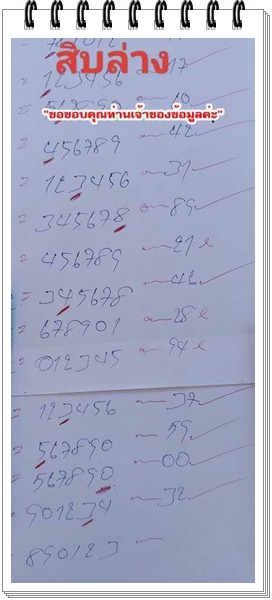 สิบล่าง
17
123456
10
"ขอขอบคุณท่านเจ้าของข้อมูลค่ะ"
= 456789 - 42
= 123456 - 31
= 345678 - 89
= 456789 - 21 l
= 345678 - 46
= 678901 - 28 l
= 012345 - 94 l
= 123456 - 37
= 567890 - 59
= 567890 - 00
= 901234 - 32
= 890123 -